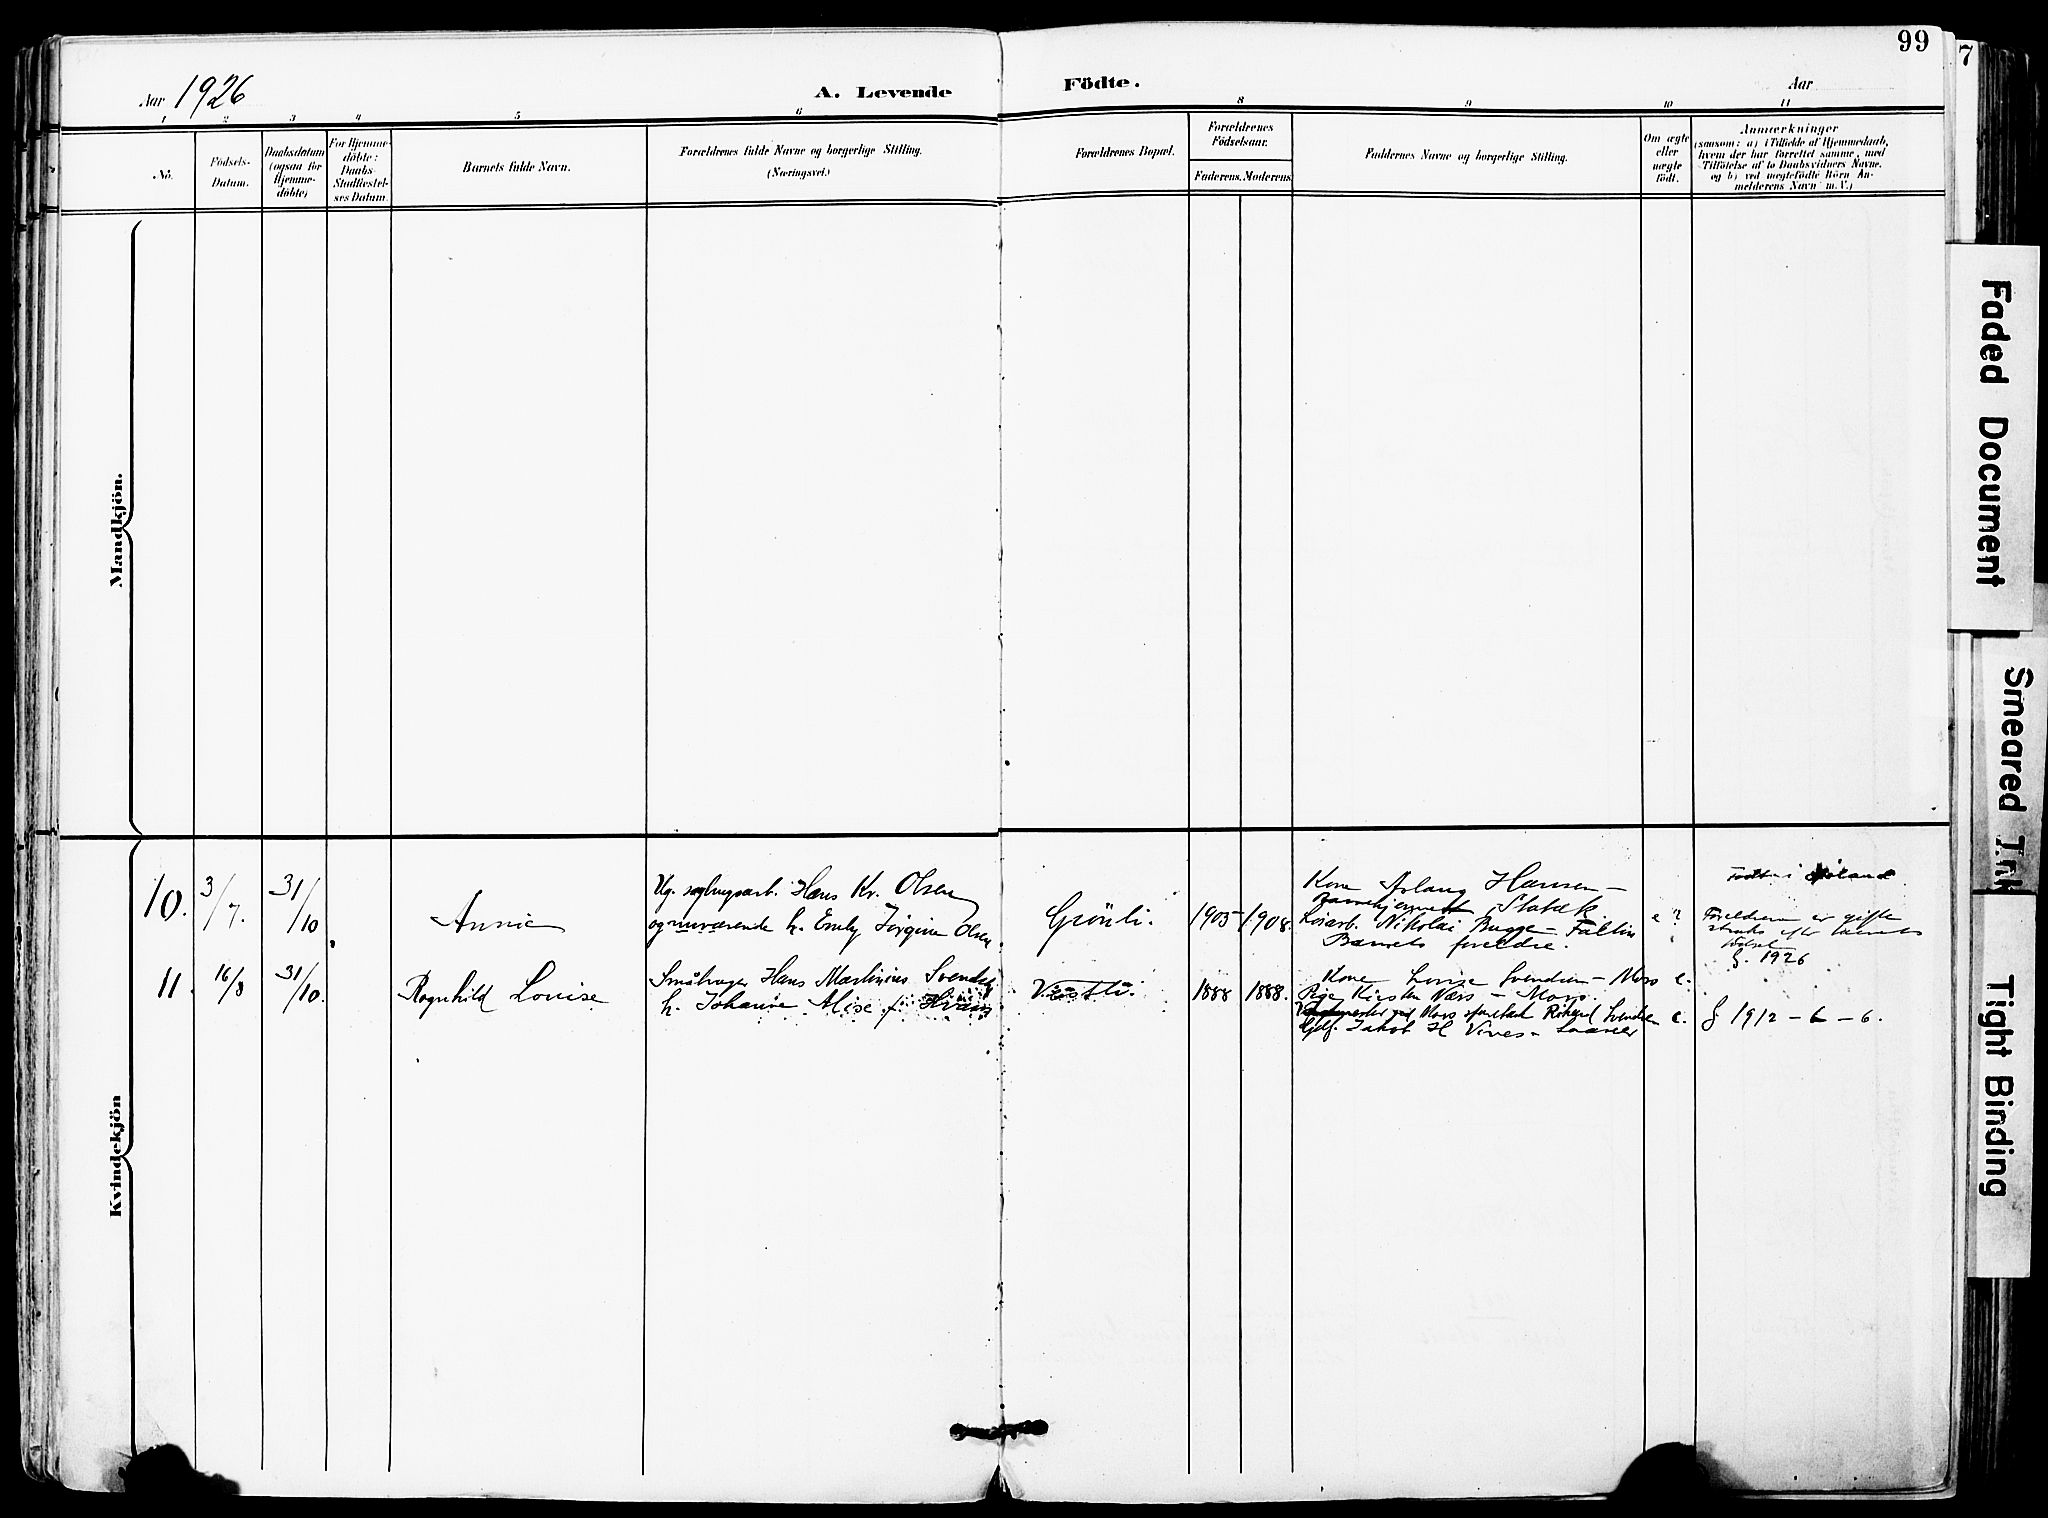 99
7
Aar 1926
A. Levende Födte.
Aar
1 2 3 4 5 6 8 9 10 11
No.
Födsels-
Datum.
Daabsdatum
(ogsaa for
Hjemme-
döbte)
For Hjemme-
döbte:
Daabs-
Stadfæstel-
ses Datum.
Barnets fulde Navn.
Forældrenes fulde Navne og borgerlige Stilling.
(Næringsvei.)
Forældrenes Bopæl.
Forældrenes
Födselsaar.
Faderens. Moderens.
Faddernes Navne og borgerlige Stilling.
Om ægte
eller
uægte
födt.
Anmærkninger
(saasom: a) (Tilfælde af Hjemmedaab,
hvem der har forrettet samme, med
Tilföielse af to Daabsvidners Navne.
og b) ved uægtefödte Börn An-
melderens Navn m. V.)
Mandkjön.
Kvindekjön
10. 3/7. 31/10
Annie
Ug. sagbrugsarb. Hans Kr. Olsen
og nuværende h. Emly Jörgine Olsen
Grönli.
1905 1908.
Kone Aslaug Hansen –
Nikolai Bugge – Faltin
Barnets foreldre.
e ?
Foreldrene er gifte
straks efter barnets
födsel
§. 1926
11. 16/8 31/10.
Ragnhild Louise
Småbruger Hans Martinius Svendsen
h. Johanne Alise f.
Vestli.
1888 1888.
Kone Lovise Svendsen – Moss
Pige Kirsten Næss – Moss.
Jakob H
e.
e.
§ 1912 – 6 – 6.
Faded Document
Smeared Ink
Tight Binding